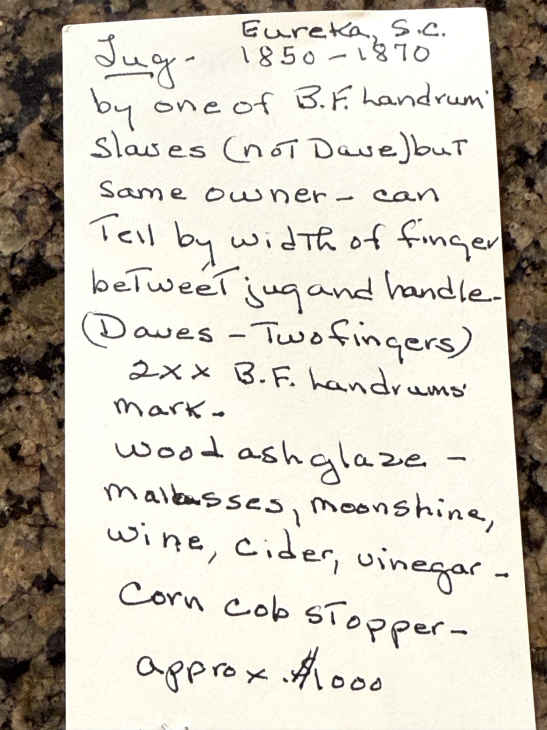 Eureka, S.C.
Jug - 1850-1870
by one of B.F. Landrum'
Slaves (not Dave) but
same owner - can
Tell by width of finger
beTweeT jug and handle-
(Daves - Two fingers)
2xx B.F. Landrums'
mark-
wood ash glaze -
mallasses, moonshine,
wine, cider, vinegar -
Corn cob sTopper-
approx. $1000